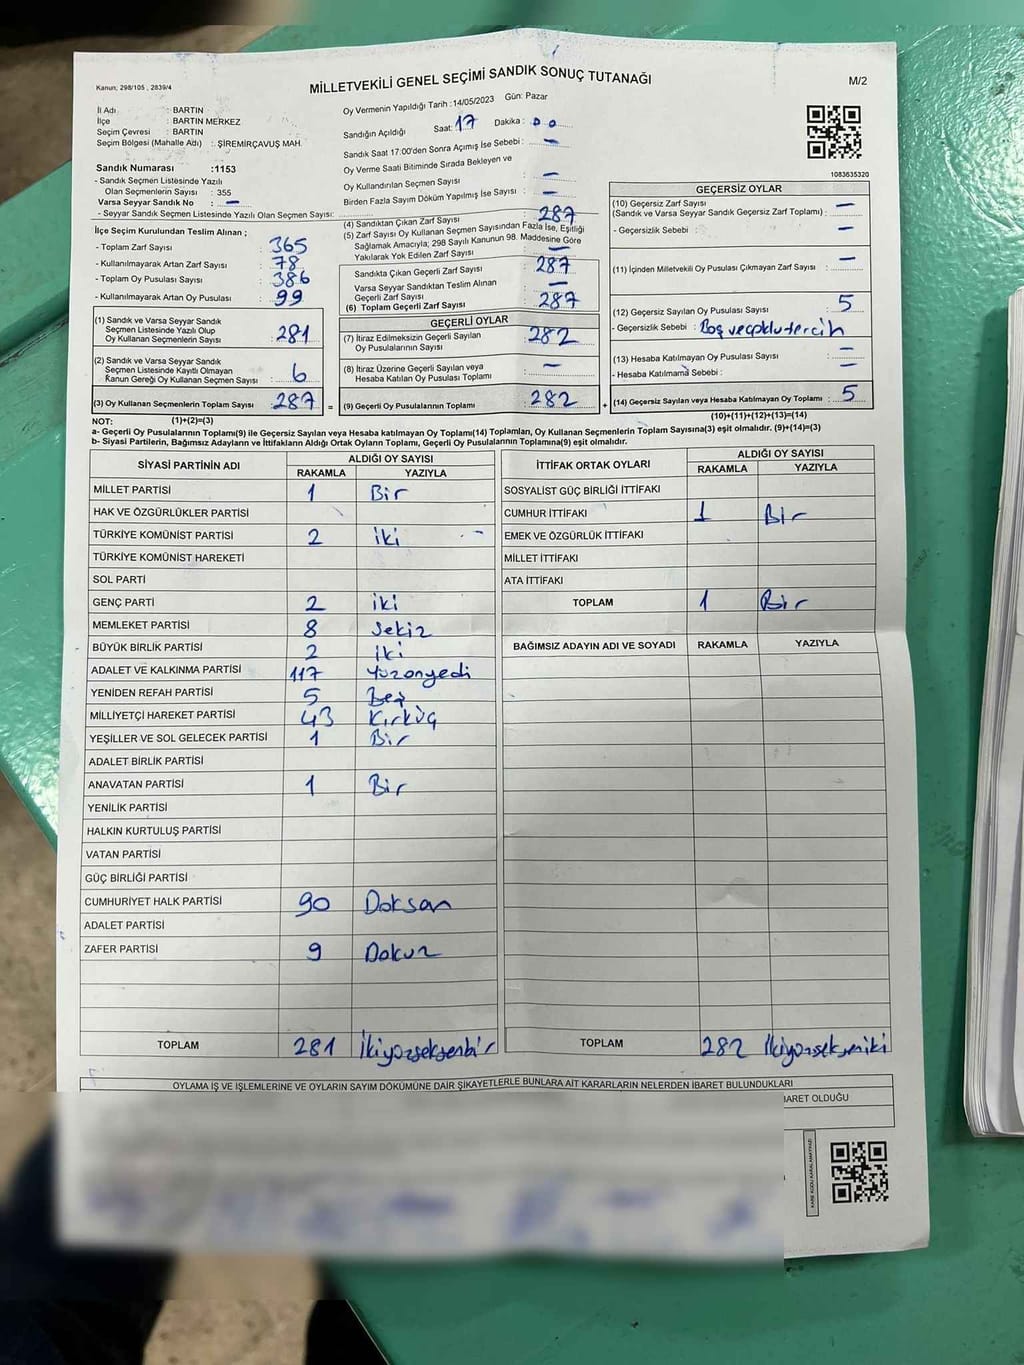 MİLLETVEKİLİ GENEL SEÇİMİ SANDIK SONUÇ TUTANAĞI
Kanun; 298/105 , 2839/4
M/2
İl Adı : BARTIN
İlçe : BARTIN MERKEZ
Seçim Çevresi : BARTIN
Seçim Bölgesi (Mahalle Adı) : ŞİREMİRÇAVUŞ MAH.
Sandık Numarası :1153
- Sandık Seçmen Listesinde Yazılı
Olan Seçmenlerin Sayısı : 355
Varsa Seyyar Sandık No : —
- Seyyar Sandık Seçmen Listesinde Yazılı Olan Seçmen Sayısı:
Oy Vermenin Yapıldığı Tarih :14/05/2023 Gün: Pazar
Sandığın Açıldığı Saat: 17 Dakika : 00
Sandık Saat 17:00'den Sonra Açımış İse Sebebi : —
Oy Verme Saati Bitiminde Sırada Bekleyen ve
Oy Kullandırılan Seçmen Sayısı : —
Birden Fazla Sayım Döküm Yapılmış İse Sayısı : —
1083635320
İlçe Seçim Kurulundan Teslim Alınan ;
- Toplam Zarf Sayısı : 365
- Kullanılmayarak Artan Zarf Sayısı : 78
- Toplam Oy Pusulası Sayısı : 386
- Kullanılmayarak Artan Oy Pusulası : 99
(1) Sandık ve Varsa Seyyar Sandık
Seçmen Listesinde Yazılı Olup
Oy Kullanan Seçmenlerin Sayısı : 281
(2) Sandık ve Varsa Seyyar Sandık
Seçmen Listesinde Kayıtlı Olmayan
Kanun Gereği Oy Kullanan Seçmen Sayısı : 6
(3) Oy Kullanan Seçmenlerin Toplam Sayısı : 287
(4) Sandıktan Çıkan Zarf Sayısı : 287
(5) Zarf Sayısı Oy Kullanan Seçmen Sayısından Fazla İse, Eşitliği
Sağlamak Amacıyla; 298 Sayılı Kanunun 98. Maddesine Göre
Yakılarak Yok Edilen Zarf Sayısı : —
Sandıkta Çıkan Geçerli Zarf Sayısı : 287
Varsa Seyyar Sandıktan Teslim Alınan
Geçerli Zarf Sayısı : —
(6) Toplam Geçerli Zarf Sayısı : 287
GEÇERLİ OYLAR
(7) İtiraz Edilmeksizin Geçerli Sayılan
Oy Pusulalarının Sayısı : 282
(8) İtiraz Üzerine Geçerli Sayılan veya
Hesaba Katılan Oy Pusulası Toplamı : —
= (9) Geçerli Oy Pusulalarının Toplamı : 282
GEÇERSİZ OYLAR
(10) Geçersiz Zarf Sayısı
(Sandık ve Varsa Seyyar Sandık Geçersiz Zarf Toplamı) : —
- Geçersizlik Sebebi : —
(11) İçinden Milletvekili Oy Pusulası Çıkmayan Zarf Sayısı : —
(12) Geçersiz Sayılan Oy Pusulası Sayısı : 5
- Geçersizlik Sebebi :
(13) Hesaba Katılmayan Oy Pusulası Sayısı : —
- Hesaba Katılmama Sebebi : —
+ (14) Geçersiz Sayılan veya Hesaba Katılmayan Oy Toplamı : 5
NOT: (1)+(2)=(3)
(10)+(11)+(12)+(13)=(14)
a- Geçerli Oy Pusulalarının Toplamı(9) ile Geçersiz Sayılan veya Hesaba Katılmayan Oy Toplamı(14) Toplamları, Oy Kullanan Seçmenlerin Toplam Sayısına(3) eşit olmalıdır. (9)+(14)=(3)
b- Siyasi Partilerin, Bağımsız Adayların ve İttifakların Aldığı Ortak Oyların Toplamı, Geçerli Oy Pusulalarının Toplamına(9) eşit olmalıdır.
SİYASİ PARTİNİN ADI
ALDIĞI OY SAYISI
RAKAMLA YAZIYLA
MİLLET PARTİSİ 1 Bir
HAK VE ÖZGÜRLÜKLER PARTİSİ
TÜRKİYE KOMÜNİST PARTİSİ 2 iki
TÜRKİYE KOMÜNİST HAREKETİ
SOL PARTİ
GENÇ PARTİ 2 iki
MEMLEKET PARTİSİ 8 sekiz
BÜYÜK BİRLİK PARTİSİ 2 iki
ADALET VE KALKINMA PARTİSİ 117 Yüzonyedi
YENİDEN REFAH PARTİSİ 5 Beş
MİLLİYETÇİ HAREKET PARTİSİ 43 Kırküç
YEŞİLLER VE SOL GELECEK PARTİSİ 1 Bir
ADALET BİRLİK PARTİSİ
ANAVATAN PARTİSİ 1 Bir
YENİLİK PARTİSİ
HALKIN KURTULUŞ PARTİSİ
VATAN PARTİSİ
GÜÇ BİRLİĞİ PARTİSİ
CUMHURİYET HALK PARTİSİ 90 Doksan
ADALET PARTİSİ
ZAFER PARTİSİ 9 Dokuz
TOPLAM 281 ikiyüzseksenbir
İTTİFAK ORTAK OYLARI
ALDIĞI OY SAYISI
RAKAMLA YAZIYLA
SOSYALİST GÜÇ BİRLİĞİ İTTİFAKI
CUMHUR İTTİFAKI 1 Bir
EMEK VE ÖZGÜRLÜK İTTİFAKI
MİLLET İTTİFAKI
ATA İTTİFAKI
TOPLAM 1 Bir
BAĞIMSIZ ADAYIN ADI VE SOYADI RAKAMLA YAZIYLA
TOPLAM 282 ikiyüzsekseniki
OYLAMA İŞ VE İŞLEMLERİNE VE OYLARIN SAYIM DÖKÜMÜNE DAİR ŞİKAYETLERLE BUNLARA AİT KARARLARIN NELERDEN İBARET BULUNDUKLARI
BARET OLDUĞU